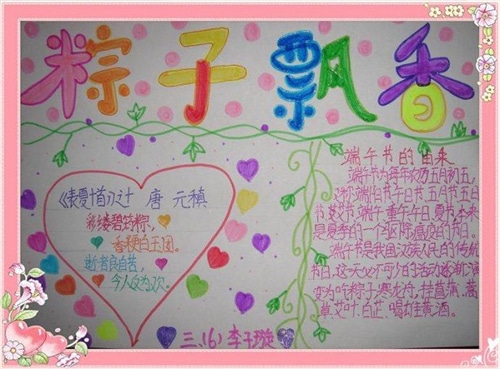 粽子飘香
《表夏十首》之十 唐 元稹
彩缕碧筠粽,
香粳白玉团。
逝者良自苦,
今人反为欢。
三、(6) 李子璇
端午节的由来
端午节为每年农历五月初五,
又称端阳节午日节五月节五日
节艾节端午重午午日夏节,本来
是夏季的一个驱除瘟疫的节日。
端午节是我国汉族人民的传统
节日,这天必不可少的活动逐渐演
变为吃粽子,赛龙舟,挂菖蒲、蒿
草、艾叶、白芷、喝雄黄酒。